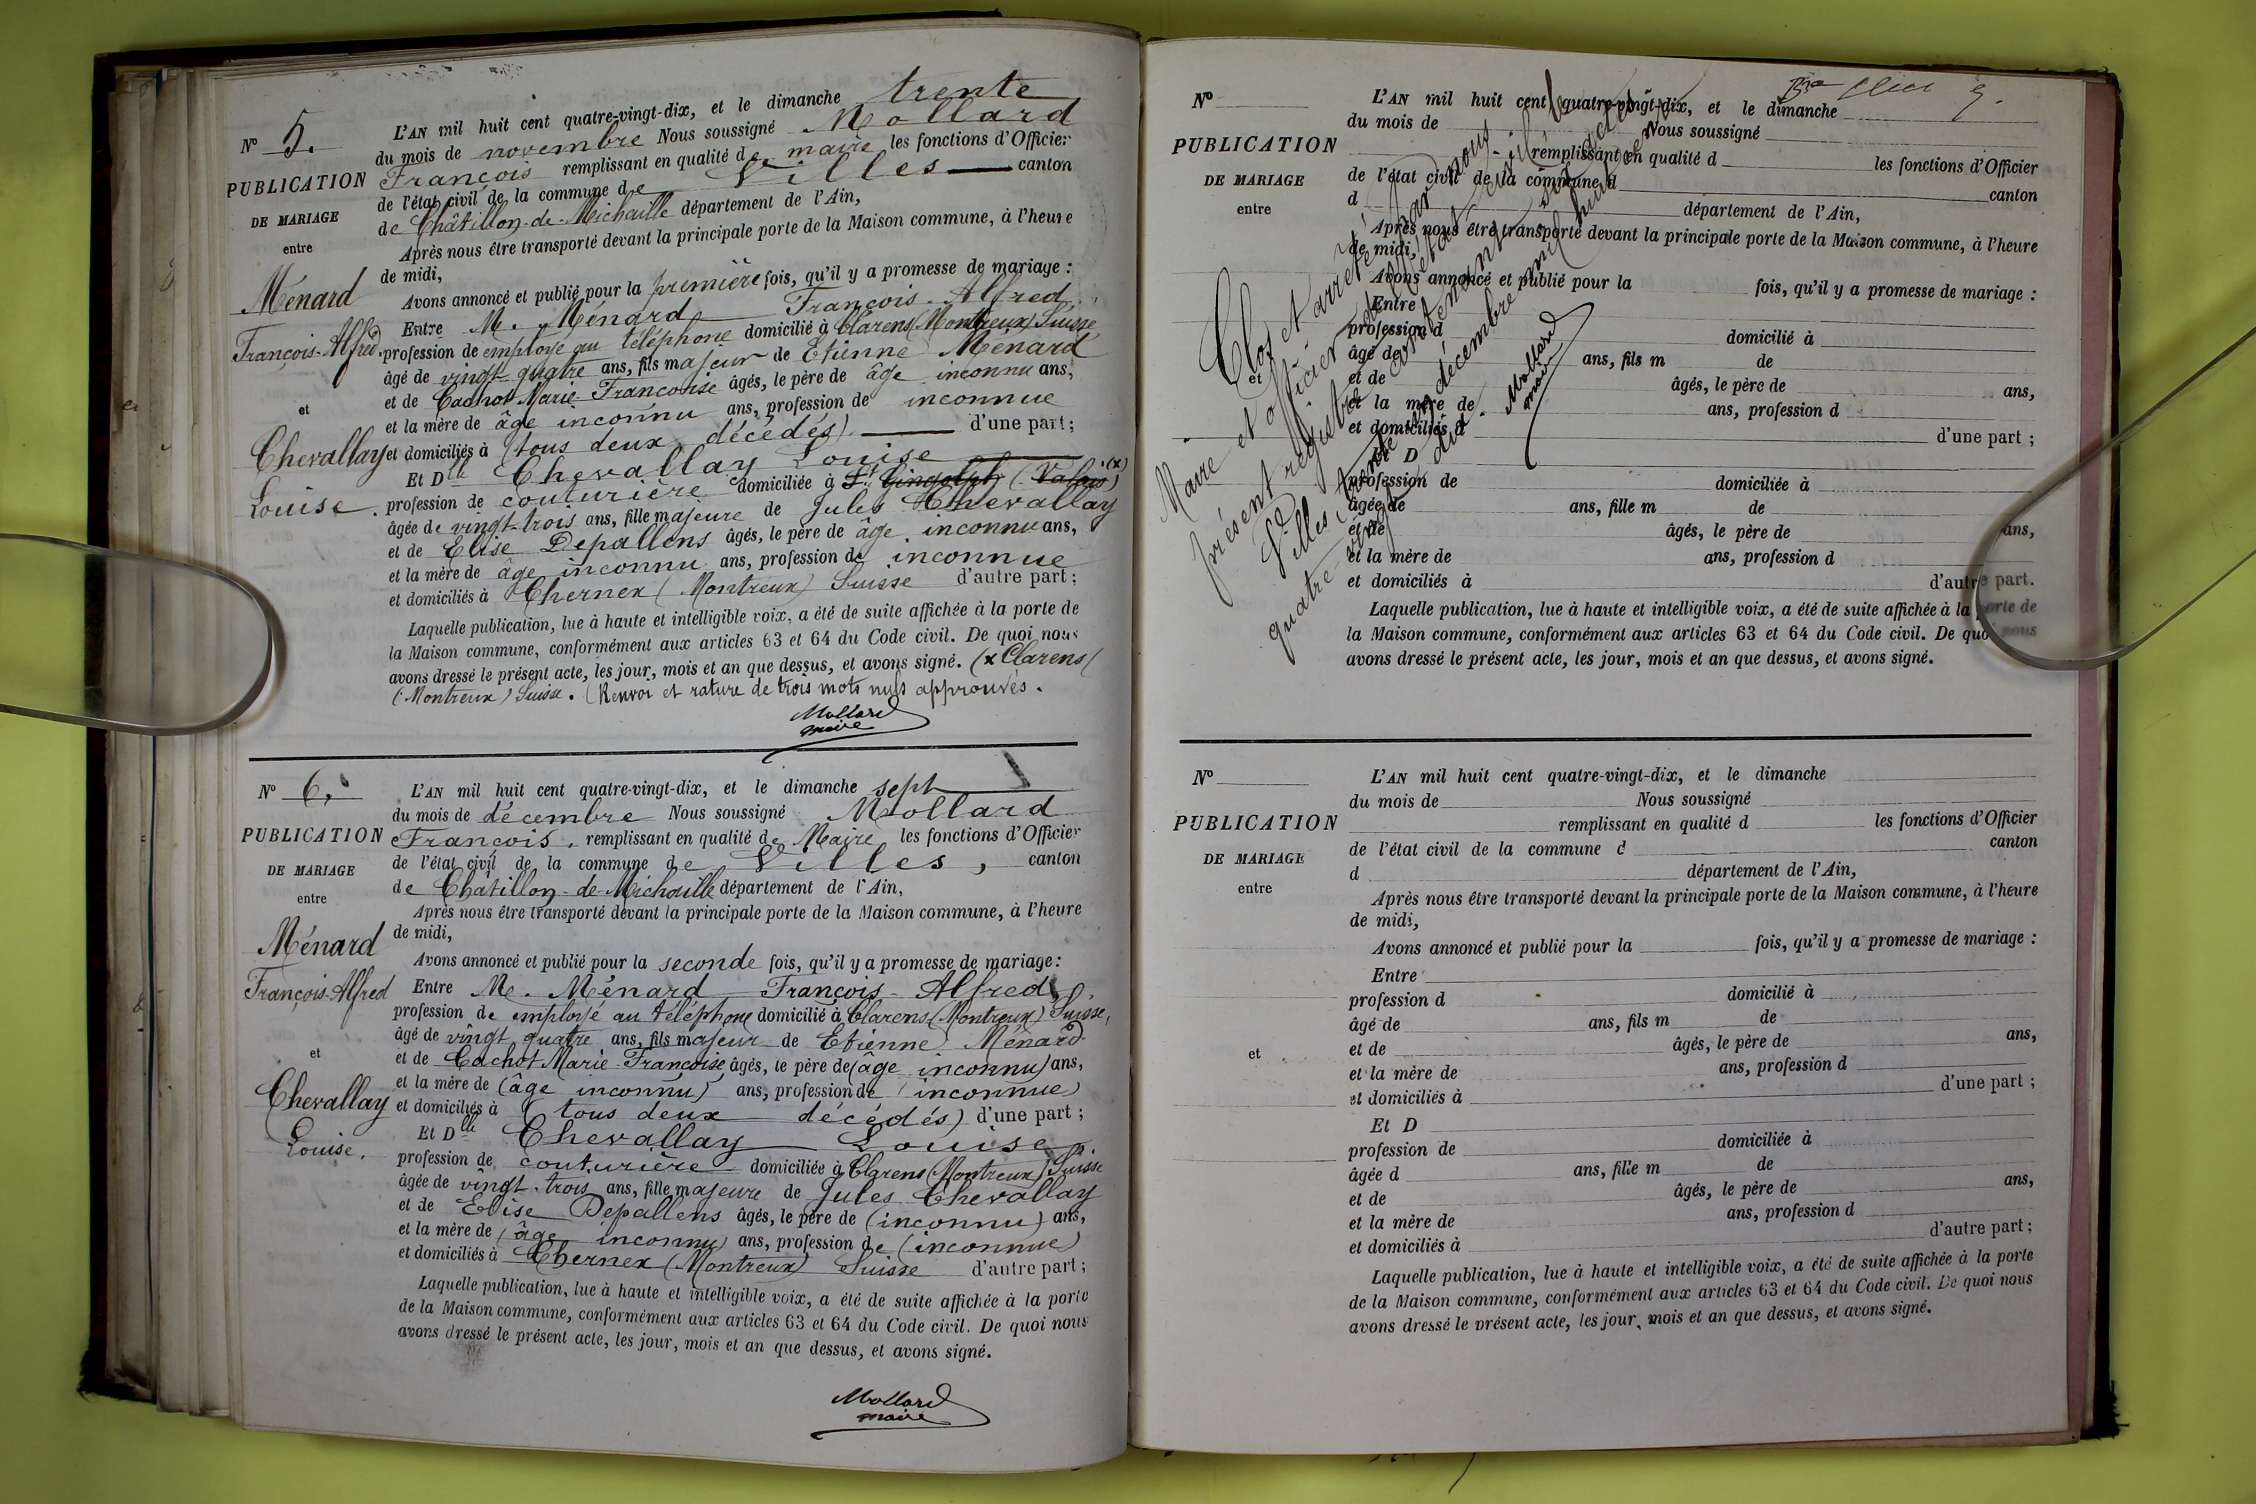 N° 5.
PUBLICATION
DE MARIAGE
entre
Ménard
François-Alfred.
et
Chevallay
Louise.
L'AN mil huit cent quatre-vingt-dix, et le dimanche trente
du mois de novembre Nous soussigné Mollard
François remplissant en qualité de maire les fonctions d'Officier
de l'état civil de la commune de Villes canton
de Châtillon-de-Michaille département de l'Ain,
Après nous être transporté devant la principale porte de la Maison commune, à l'heure
de midi,
Avons annoncé et publié pour la première fois, qu'il y a promesse de mariage :
Entre M. Ménard François-Alfred
profession de employé au téléphone domicilié à Clarens (Montreux) Suisse
âgé de vingt-quatre ans, fils majeur de Etienne Ménard
et de Cachot Marie-Françoise âgés, le père de âge inconnu ans,
et la mère de âge inconnu ans, profession de inconnue
et domiciliés à (tous deux décédés) d'une part ;
Et Dlle Chevallay Louise
profession de couturière domiciliée à St Gingolph (Valais) (x)
âgée de vingt-trois ans, fille majeure de Jules Chevallay
et de Elise Depallens âgés, le père de âge inconnu ans,
et la mère de âge inconnu ans, profession de inconnue
et domiciliés à Chernex (Montreux) Suisse d'autre part ;
Laquelle publication, lue à haute et intelligible voix, a été de suite affichée à la porte de
la Maison commune, conformément aux articles 63 et 64 du Code civil. De quoi nous
avons dressé le présent acte, les jour, mois et an que dessus, et avons signé. (x Clarens (
(Montreux) Suisse. (Renvoi et rature de trois mots nuls approuvés.
Mollard
maire
N° 6.
PUBLICATION
DE MARIAGE
entre
Ménard
François-Alfred
et
Chevallay
Louise.
L'AN mil huit cent quatre-vingt-dix, et le dimanche sept
du mois de décembre Nous soussigné Mollard
François, remplissant en qualité de Maire les fonctions d'Officier
de l'état civil de la commune de Villes, canton
de Châtillon-de-Michaille département de l'Ain,
Après nous être transporté devant la principale porte de la Maison commune, à l'heure
de midi,
Avons annoncé et publié pour la seconde fois, qu'il y a promesse de mariage :
Entre M. Ménard François-Alfred,
profession de employé au téléphone domicilié à Clarens (Montreux) Suisse,
âgé de vingt quatre ans, fils majeur de Etienne Ménard
et de Cachot Marie-Françoise âgés, le père de (âge inconnu) ans,
et la mère de (âge inconnu) ans, profession de (inconnue)
et domiciliés à (tous deux décédés) d'une part ;
Et Dlle Chevallay Louise
profession de couturière domiciliée à Clarens (Montreux) Suisse
âgée de vingt-trois ans, fille majeure de Jules Chevallay
et de Elise Depallens âgés, le père de (inconnu) ans,
et la mère de (âge inconnu) ans, profession de (inconnue)
et domiciliés à Chernex (Montreux) Suisse d'autre part ;
Laquelle publication, lue à haute et intelligible voix, a été de suite affichée à la porte
de la Maison commune, conformément aux articles 63 et 64 du Code civil. De quoi nous
avons dressé le présent acte, les jour, mois et an que dessus, et avons signé.
Mollard
maire
N°
PUBLICATION
DE MARIAGE
entre
et
L'AN mil huit cent quatre-vingt-dix, et le dimanche
du mois de Nous soussigné
remplissant en qualité d les fonctions d'Officier
de l'état civil de la commune d canton
d département de l'Ain,
Après nous être transporté devant la principale porte de la Maison commune, à l'heure
de midi,
Avons annoncé et publié pour la fois, qu'il y a promesse de mariage :
Entre
profession d domicilié à
âgé de ans, fils m de
et de âgés, le père de ans,
et la mère de ans, profession d
et domiciliés d d'une part ;
Et D
profession de domiciliée à
âgée de ans, fille m de
et de âgés, le père de ans,
et la mère de ans, profession d
et domiciliés à d'autre part.
Laquelle publication, lue à haute et intelligible voix, a été de suite affichée à la porte de
la Maison commune, conformément aux articles 63 et 64 du Code civil. De quoi nous
avons dressé le présent acte, les jour, mois et an que dessus, et avons signé.
Clos et arrêté par nous
Maire et officier de l'état civil le
présent registre contenant six actes
Villes, trente un décembre mil huit cent
quatre-vingt dix.
Mollard
maire
N°
PUBLICATION
DE MARIAGE
entre
et
L'AN mil huit cent quatre-vingt-dix, et le dimanche
du mois de Nous soussigné
remplissant en qualité d les fonctions d'Officier
de l'état civil de la commune d canton
d département de l'Ain,
Après nous être transporté devant la principale porte de la Maison commune, à l'heure
de midi,
Avons annoncé et publié pour la fois, qu'il y a promesse de mariage :
Entre
profession d domicilié à
âgé de ans, fils m de
et de âgés, le père de ans,
et la mère de ans, profession d
et domiciliés à d'une part ;
Et D
profession de domiciliée à
âgée d ans, fille m de
et de âgés, le père de ans,
et la mère de ans, profession d
et domiciliés à d'autre part ;
Laquelle publication, lue à haute et intelligible voix, a été de suite affichée à la porte
de la Maison commune, conformément aux articles 63 et 64 du Code civil. De quoi nous
avons dressé le présent acte, les jour, mois et an que dessus, et avons signé.